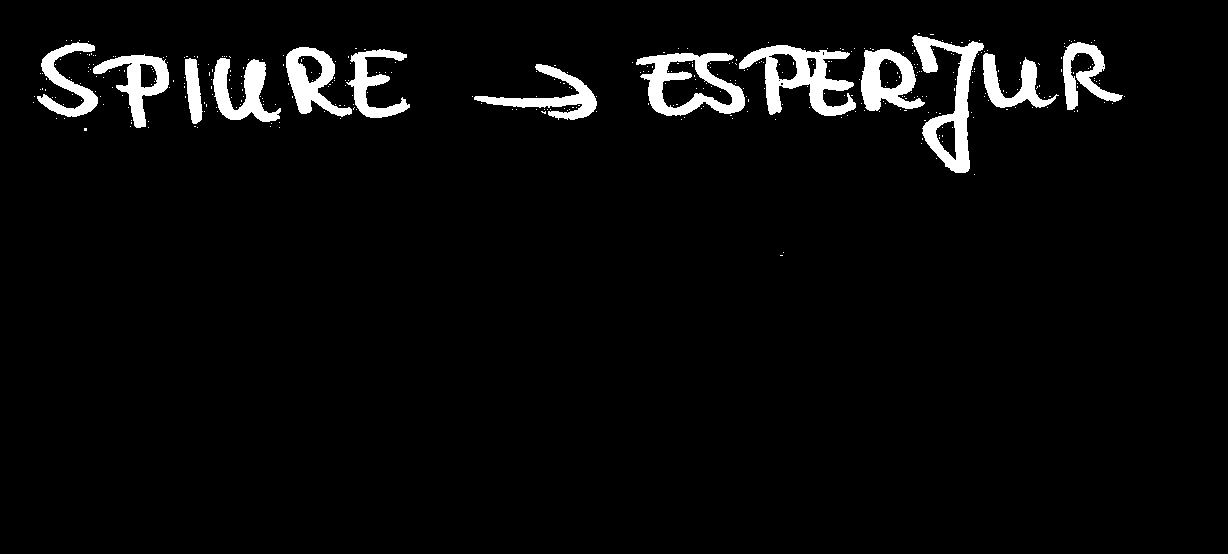 SPIURE → ESPERJUR